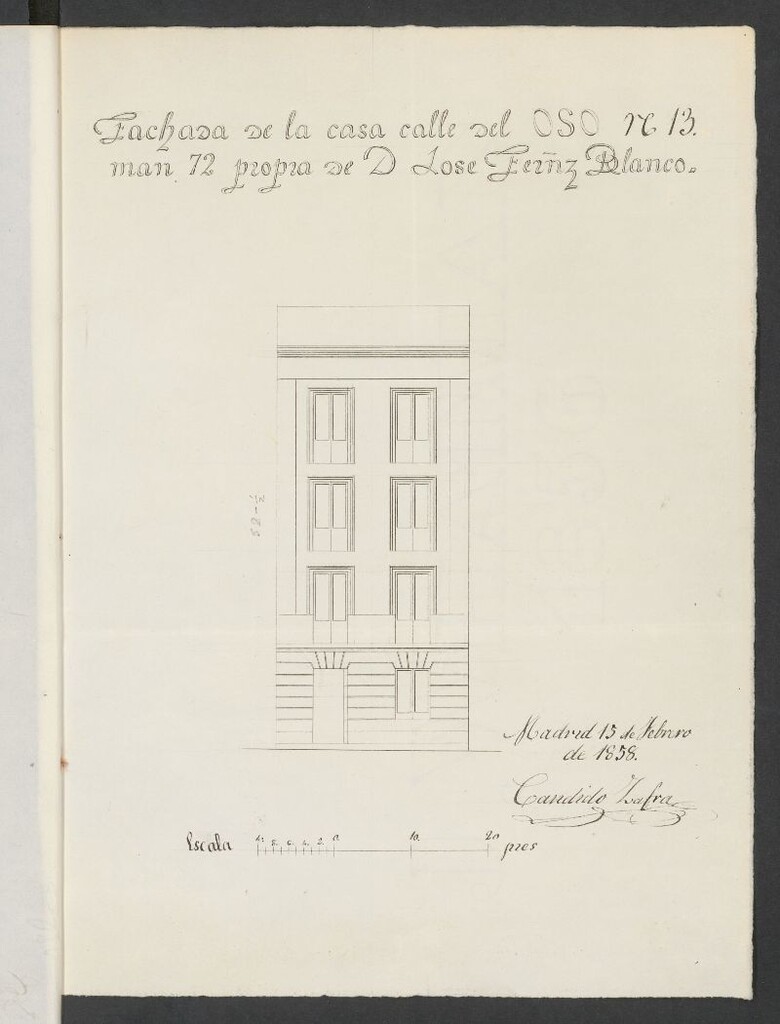 Fachada de la casa calle del OSO N 13.
man 72 propra de D Jose Fern̄z Blanco.
52-½
Madrid 15 de Febrero
de 1858.
Candido Zafra
Escala 10 8 6 4 2 0 10 20 pies